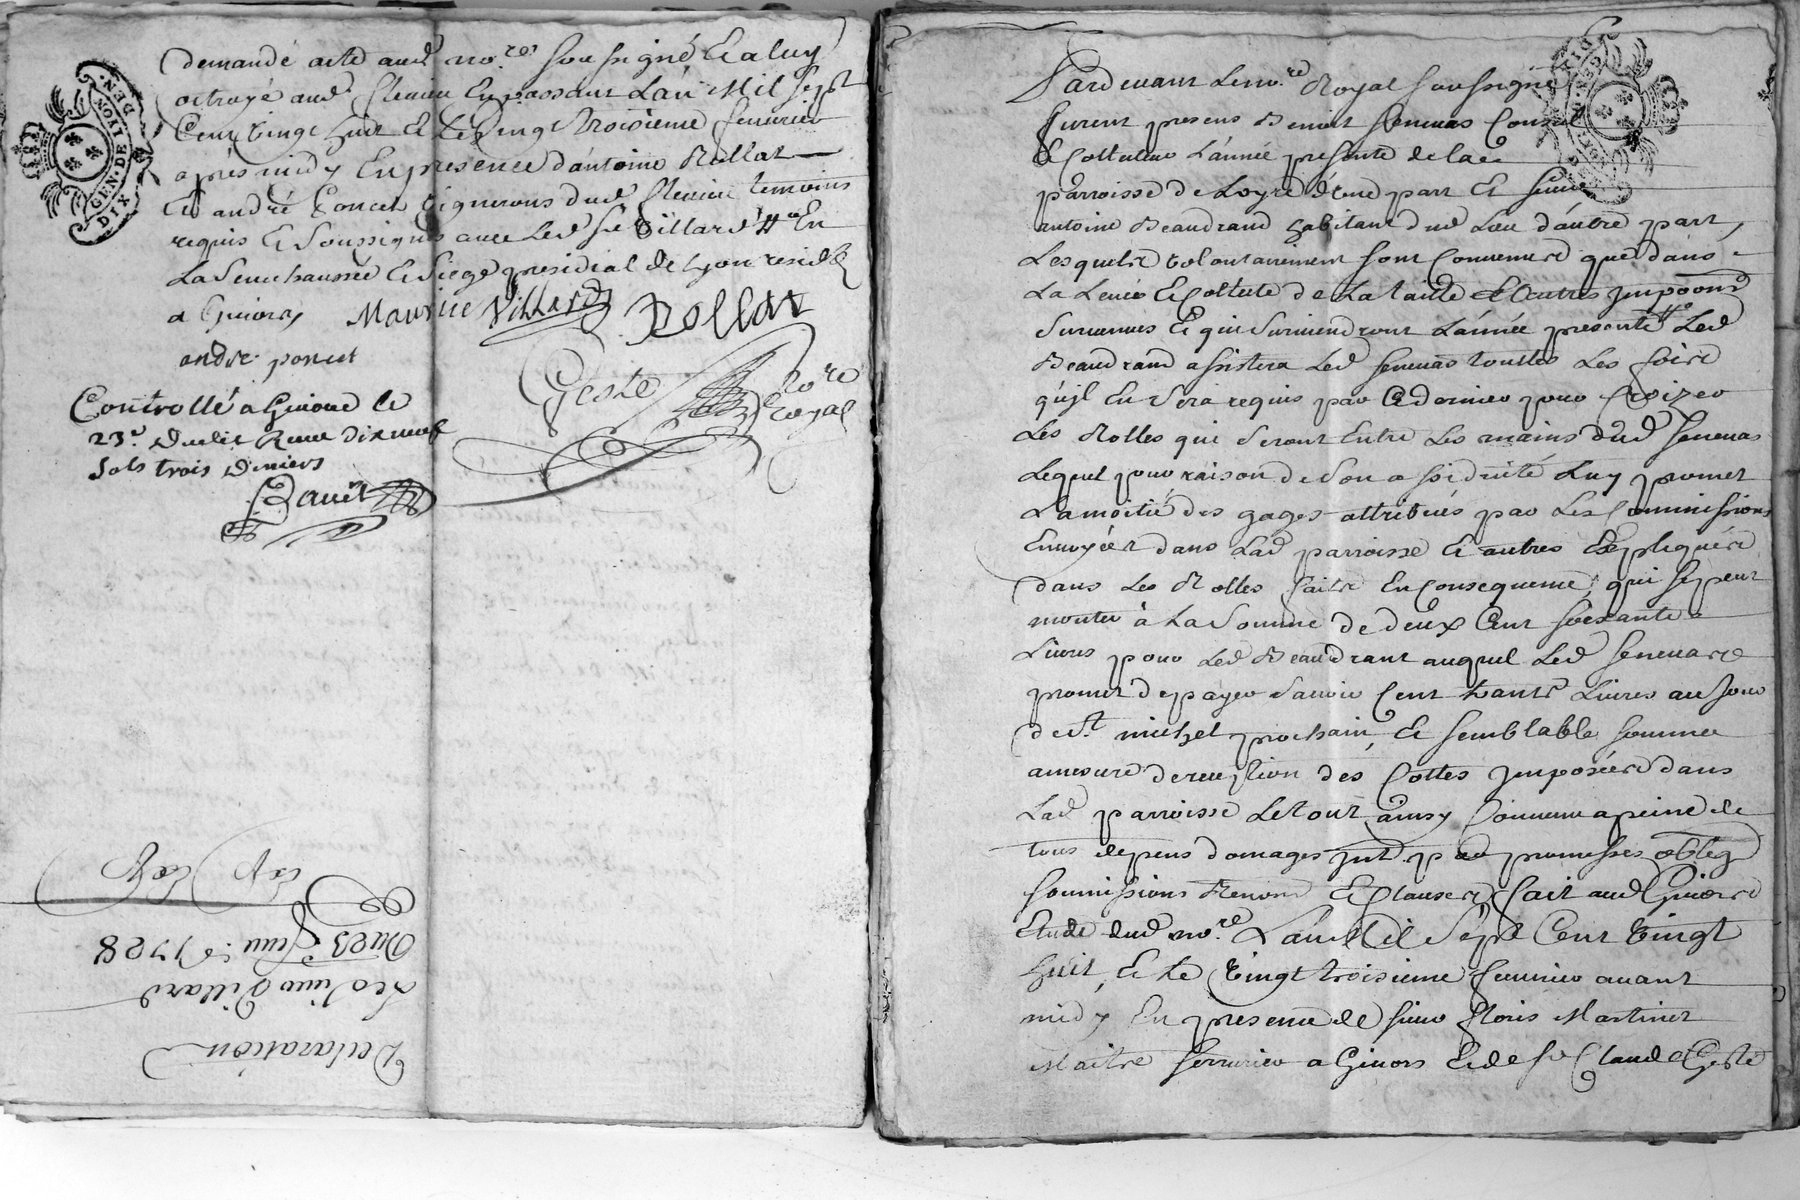 demandé acte aud. no.re soussigné Ea luy
octroyé aud. En passant L'an Mil sept
Cent Vingt huit Et Le Vingt troisieme feuurier
après midy En presence d'antoine Rollat
Et andré Poncet Vignerons dud. temoins
requis Et soussignés auec Led. Sr Villard En
La Seneschaussée Et Siege presidial de Lyon resid.
a Giuors Maurice Villard Rollat
andré poncet
Geste No.re Royal
Controllé a Giuors le
23.e dudit Receu dix neuf
sols trois deniers
GEN. DE LYON
DIX DEN.
Declaration
Villard
Du 23 feu. 1728
Pardeuant Le no.re Royal Soussigné
furent presens Benoit Seneuas Consul
Et Collecteur L'année presente de la
parroisse de Loyre d'Une part Et sieur
antoine Beaudrand habitant dud. Lieu d'autre part,
Lesquels volontairement sont Conuenus que dans
La Leuée Et Collecte de La taille Et autres Jmpo.ons
Suruenues Et qui Suruiendront L'année presente Led.
Beaudrand assistera Led. Seneuas touttes Les fois
qu'jl En Sera requis par Ce dernier pour Croizer
Les Rolles qui Seront Entre Les mains dud. Seneuas
Lequel pour raison de Son assiduité Luy promet
La moitié des gages attribués par Les Commissions
Enuoyées dans Lad. parroisse Et autres Expliquées
dans Les Rolles faits En Consequence, qui se peut
monter à La Somme de deux Cent soixante
Liures pour Led. Beaudrant auquel Led. Seneuas
promet de payer Sauoir Cent trante Liures au Jour
de St. michel prochain, Et semblable somme
a mesure de reception des Cottes Jmposées dans
Lad. parroisse Le tout ainsy Conuenu a peine de
tous depens domages Jnt. par promesses oblig.
soumissions Renon. Et Clauses, fait aud. Giuors
Etude dud. no.re L'an Mil Sept Cent Vingt
huit, Et Le Vingt troisieme feurier auant
midy En presence de sieur floris Martinet
Maitre serrurier a Giuors Et de Sr Claude Geste